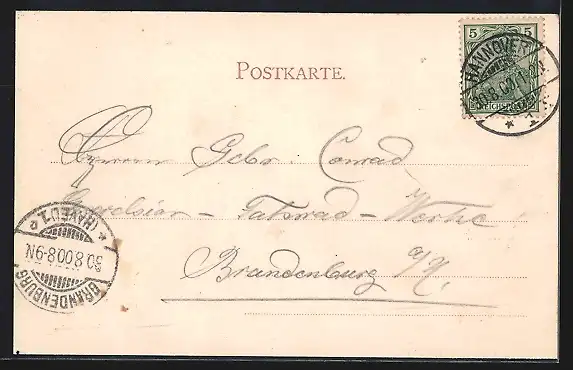 POSTKARTE.
5 5
REICHSPOST
HANNOVER
30.8.00.11-12V.
* 1 *
Herren Gebr. Conrad
Excelsior - Fahrrad - Werke
Brandenburg a/H.
BRANDENBURG
30.8.00.8-9N
* (HAVEL) 1 e